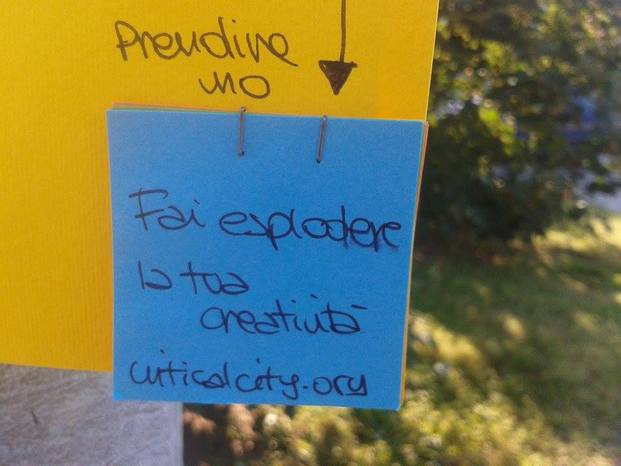 Prendine
uno
Fai esplodere
la tua
creatività
criticalcity.org